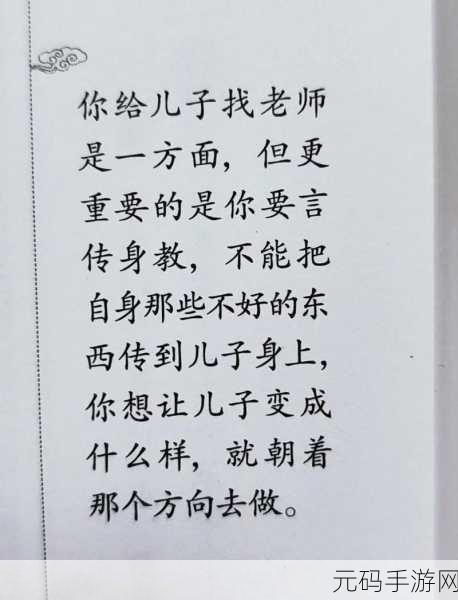 你给儿子找老师
是一方面，但更
重要的是你要言
传身教，不能把
自身那些不好的东
西传到儿子身上，
你想让儿子变成
什么样，就朝着
那个方向去做。
元码手游网